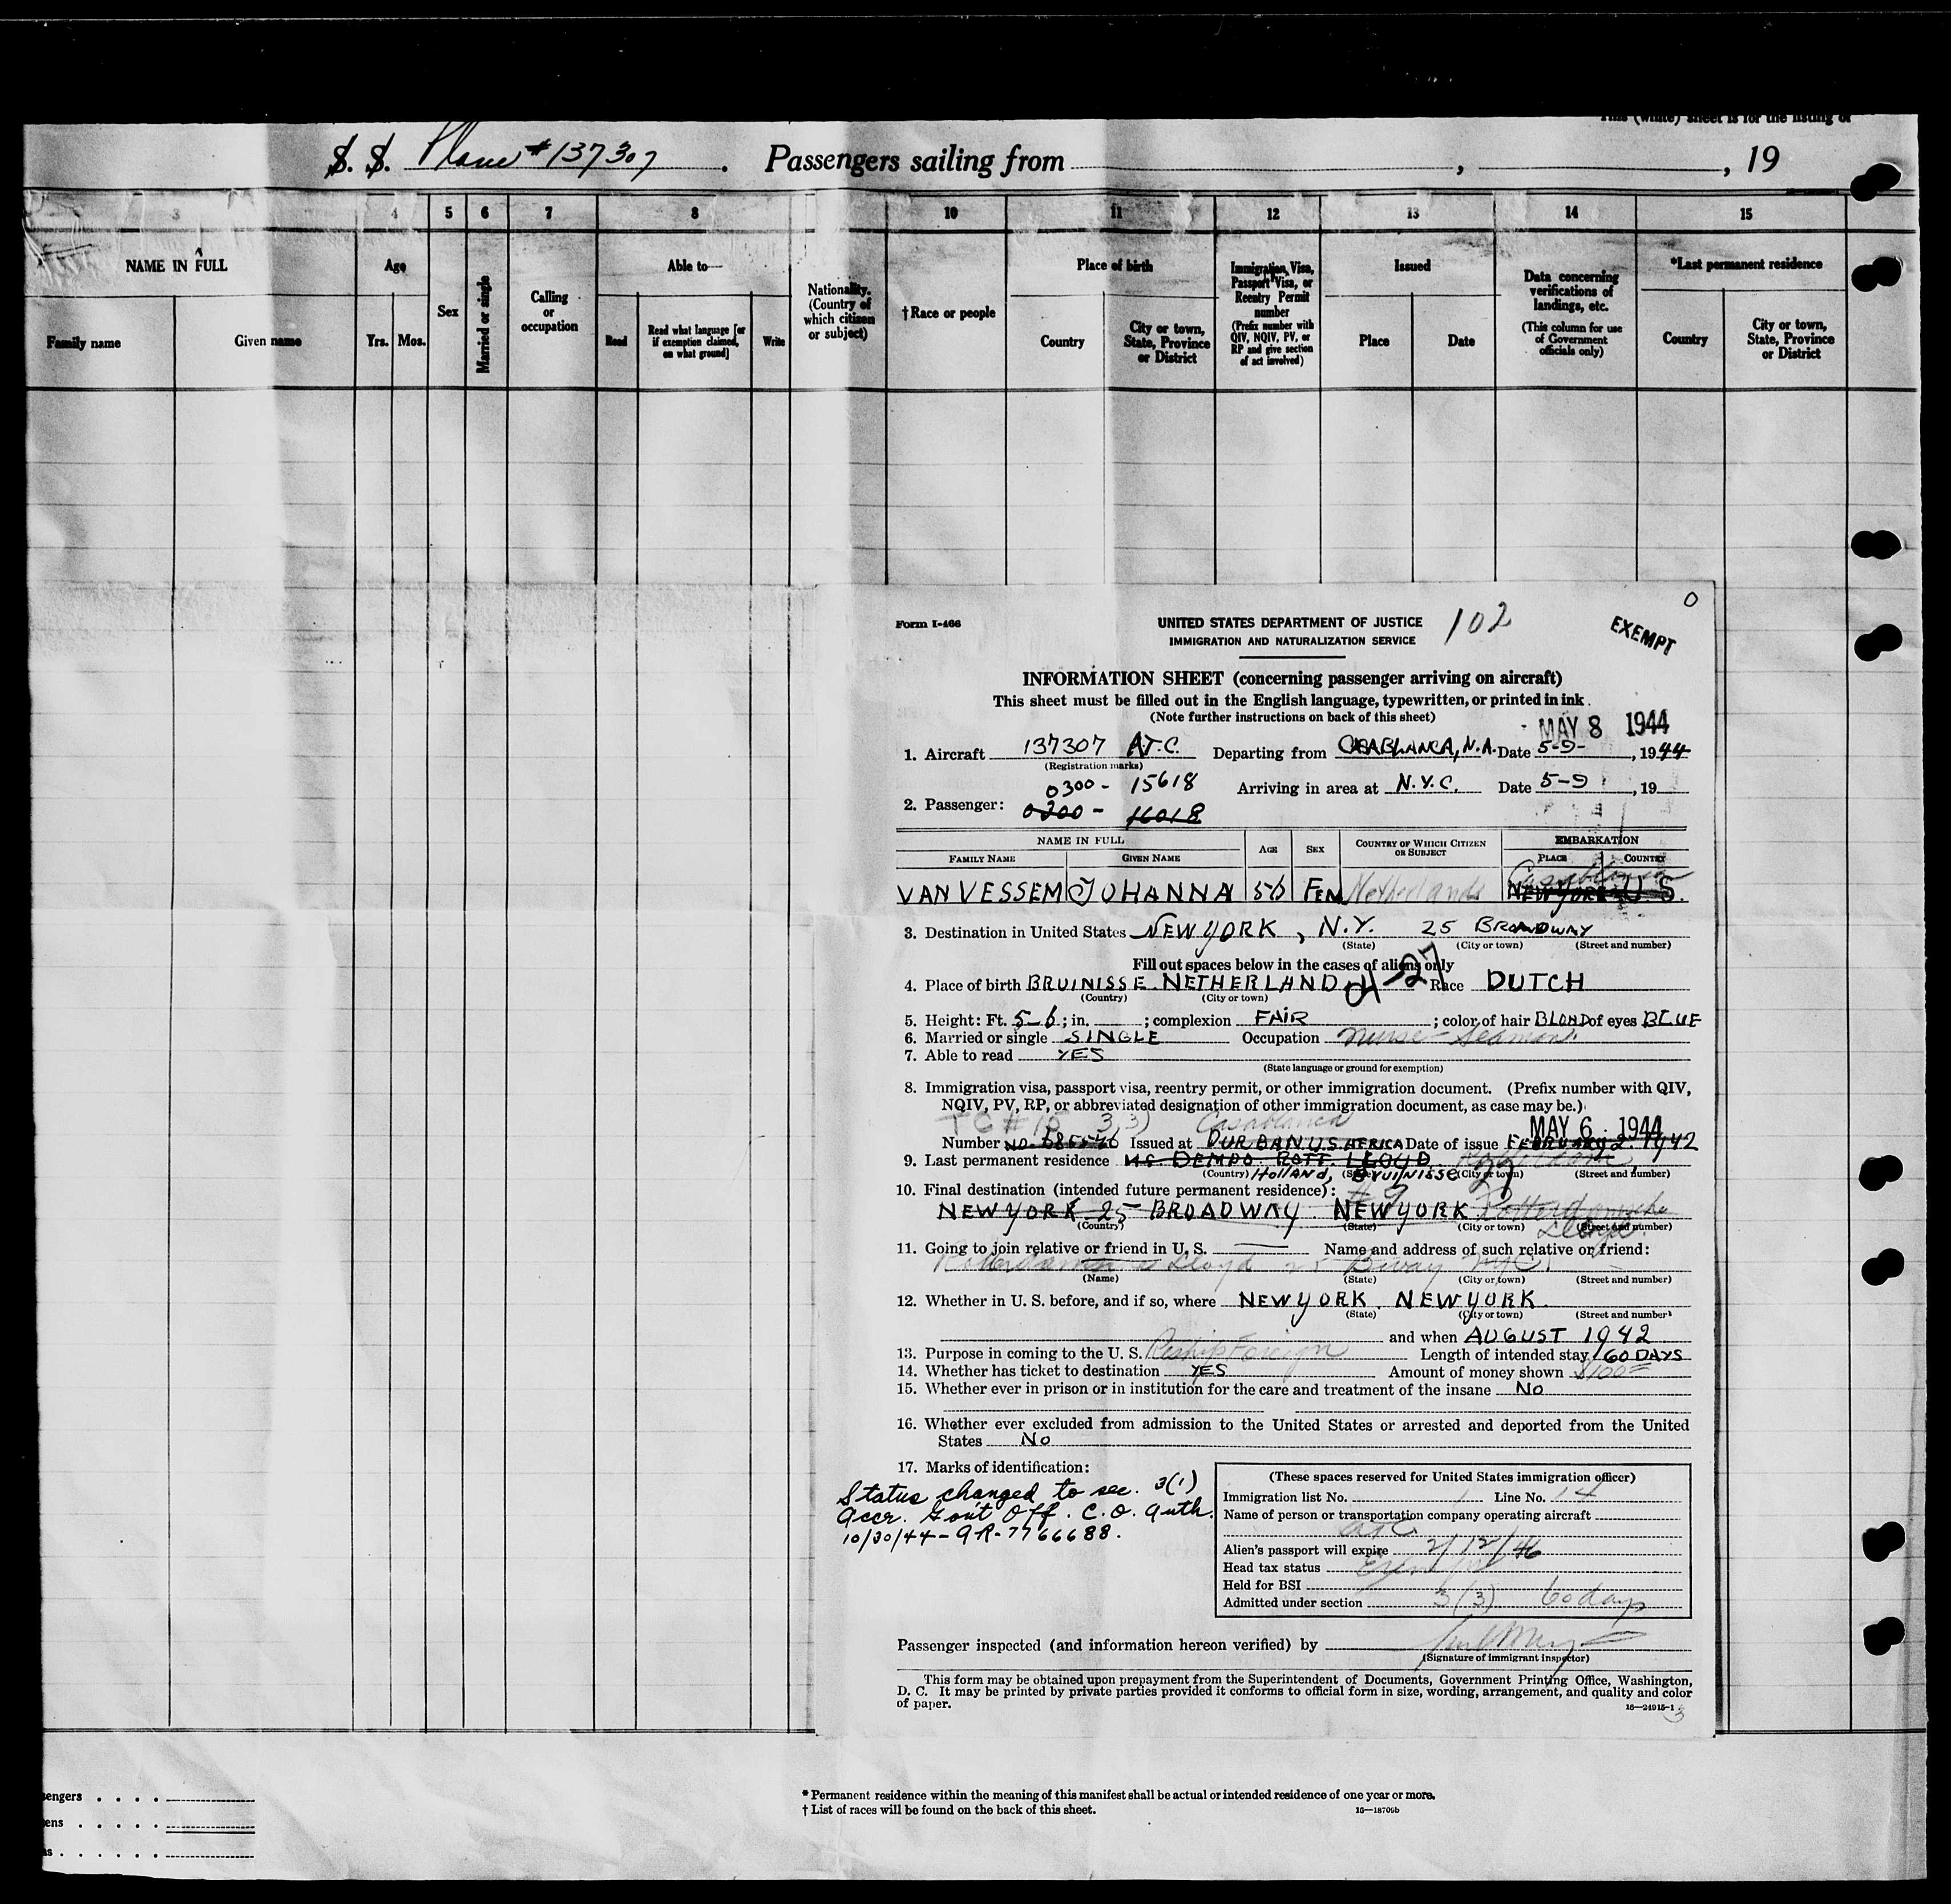 This (white) sheet is for the listing of
S. S. Plane #137307. Passengers sailing from , , 19
3 4 5 6 7 8 10 11 12 13 14 15
NAME IN FULL
Family name
Given name
Age
Yrs. Mos.
Sex
Married or single
Calling
or
occupation
Able to—
Read
Read what language [or
if exemption claimed,
on what ground]
Write
Nationality.
(Country of
which citizen
or subject)
†Race or people
Place of birth
Country
City or town,
State, Province
or District
Immigration Visa,
Passport Visa, or
Reentry Permit
number
(Prefix number with
QIV, NQIV, PV, or
RP and give section
of act involved)
Issued
Place
Date
Data concerning
verifications of
landings, etc.
(This column for use
of Government
officials only)
*Last permanent residence
Country
City or town,
State, Province
or District
0
Form I-466
UNITED STATES DEPARTMENT OF JUSTICE 102
IMMIGRATION AND NATURALIZATION SERVICE
EXEMPT
INFORMATION SHEET (concerning passenger arriving on aircraft)
This sheet must be filled out in the English language, typewritten, or printed in ink.
(Note further instructions on back of this sheet)
MAY 8 1944
1. Aircraft 137307 A.T.C. Departing from CASABLANCA, N.A. Date 5-9-, 1944
(Registration marks)
0300 - 15618 Arriving in area at N.Y.C. Date 5-9, 19
2. Passenger: 0200 - 16018
NAME IN FULL AGE SEX COUNTRY OF WHICH CITIZEN OR SUBJECT EMBARKATION
FAMILY NAME GIVEN NAME PLACE COUNTRY
Casablanca
VAN VESSEM JOHANNA Fem Netherlands NEW YORK U S.
3. Destination in United States NEW YORK, N.Y. 25 BROADWAY
(State) (City or town) (Street and number)
Fill out spaces below in the cases of aliens only
4. Place of birth BRUINISSE. NETHERLAND Race DUTCH
(Country) (City or town)
5. Height: Ft. 5-6; in. ; complexion FAIR ; color of hair BLOND of eyes BLUE
6. Married or single SINGLE Occupation Nurse - Seaman
7. Able to read YES
(State language or ground for exemption)
8. Immigration visa, passport visa, reentry permit, or other immigration document. (Prefix number with QIV,
NQIV, PV, RP, or abbreviated designation of other immigration document, as case may be.)
TC #15 3,3) Casablanca MAY 6 1944
Number Issued at DURBAN U.S. AFRICA Date of issue FEBRUARY 2 1942
9. Last permanent residence MS. DEMPO. ROTT. LLOYD
(Country) Holland, (State) Bruinisse (City or town) (Street and number)
10. Final destination (intended future permanent residence):
NEW YORK 25 BROADWAY NEW YORK
(Country) (State) (City or town) (Street and number)
11. Going to join relative or friend in U. S. Name and address of such relative or friend:
Lloyd 25 Bway NYC
(Name) (State) (City or town) (Street and number)
12. Whether in U. S. before, and if so, where NEW YORK. NEW YORK.
(State) (City or town) (Street and number)
and when AUGUST 1942
13. Purpose in coming to the U. S. Reship Foreign Length of intended stay 60 DAYS
14. Whether has ticket to destination YES Amount of money shown $100
15. Whether ever in prison or in institution for the care and treatment of the insane No
16. Whether ever excluded from admission to the United States or arrested and deported from the United
States No
17. Marks of identification:
Status changed to sec. 3(1)
Accr. Gov't Off. C.O. Auth.
10/30/44 - AR-7766688.
(These spaces reserved for United States immigration officer)
Immigration list No. 1 Line No. 14
Name of person or transportation company operating aircraft
ATC
Alien's passport will expire 2/12/46
Head tax status Exempt
Held for BSI
Admitted under section 3(3) 60 days
Passenger inspected (and information hereon verified) by
(Signature of immigrant inspector)
This form may be obtained upon prepayment from the Superintendent of Documents, Government Printing Office, Washington,
D. C. It may be printed by private parties provided it conforms to official form in size, wording, arrangement, and quality and color
of paper. 16—24915-1
3
*Permanent residence within the meaning of this manifest shall be actual or intended residence of one year or more.
†List of races will be found on the back of this sheet. 16—18709b